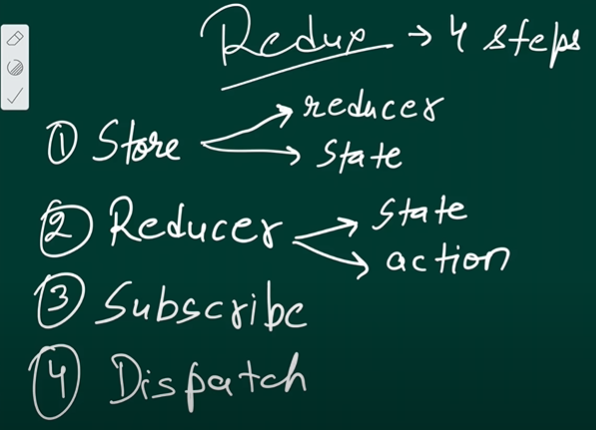 Redux → 4 steps
① Store → reducer
→ State
② Reducer → State
→ action
③ Subscribe
④ Dispatch